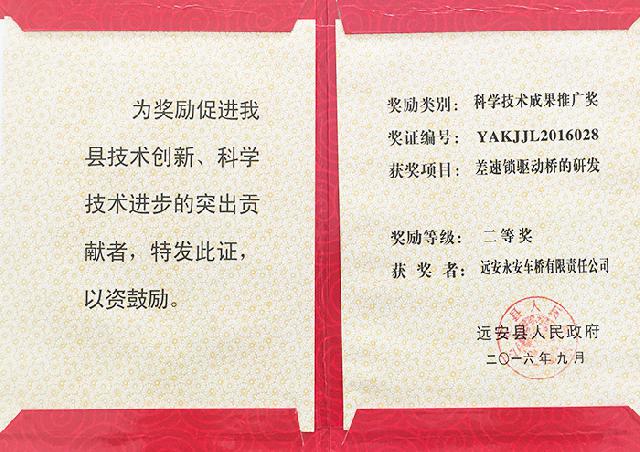 为奖励促进我
县技术创新、科学
技术进步的突出贡
献者，特发此证，
以资鼓励。
奖励类别：科学技术成果推广奖
奖证编号：YAKJJL2016028
获奖项目：差速锁驱动桥的研发
奖励等级：二等奖
获奖者：远安永安车桥有限责任公司
远安县人民政府
二〇一六年九月